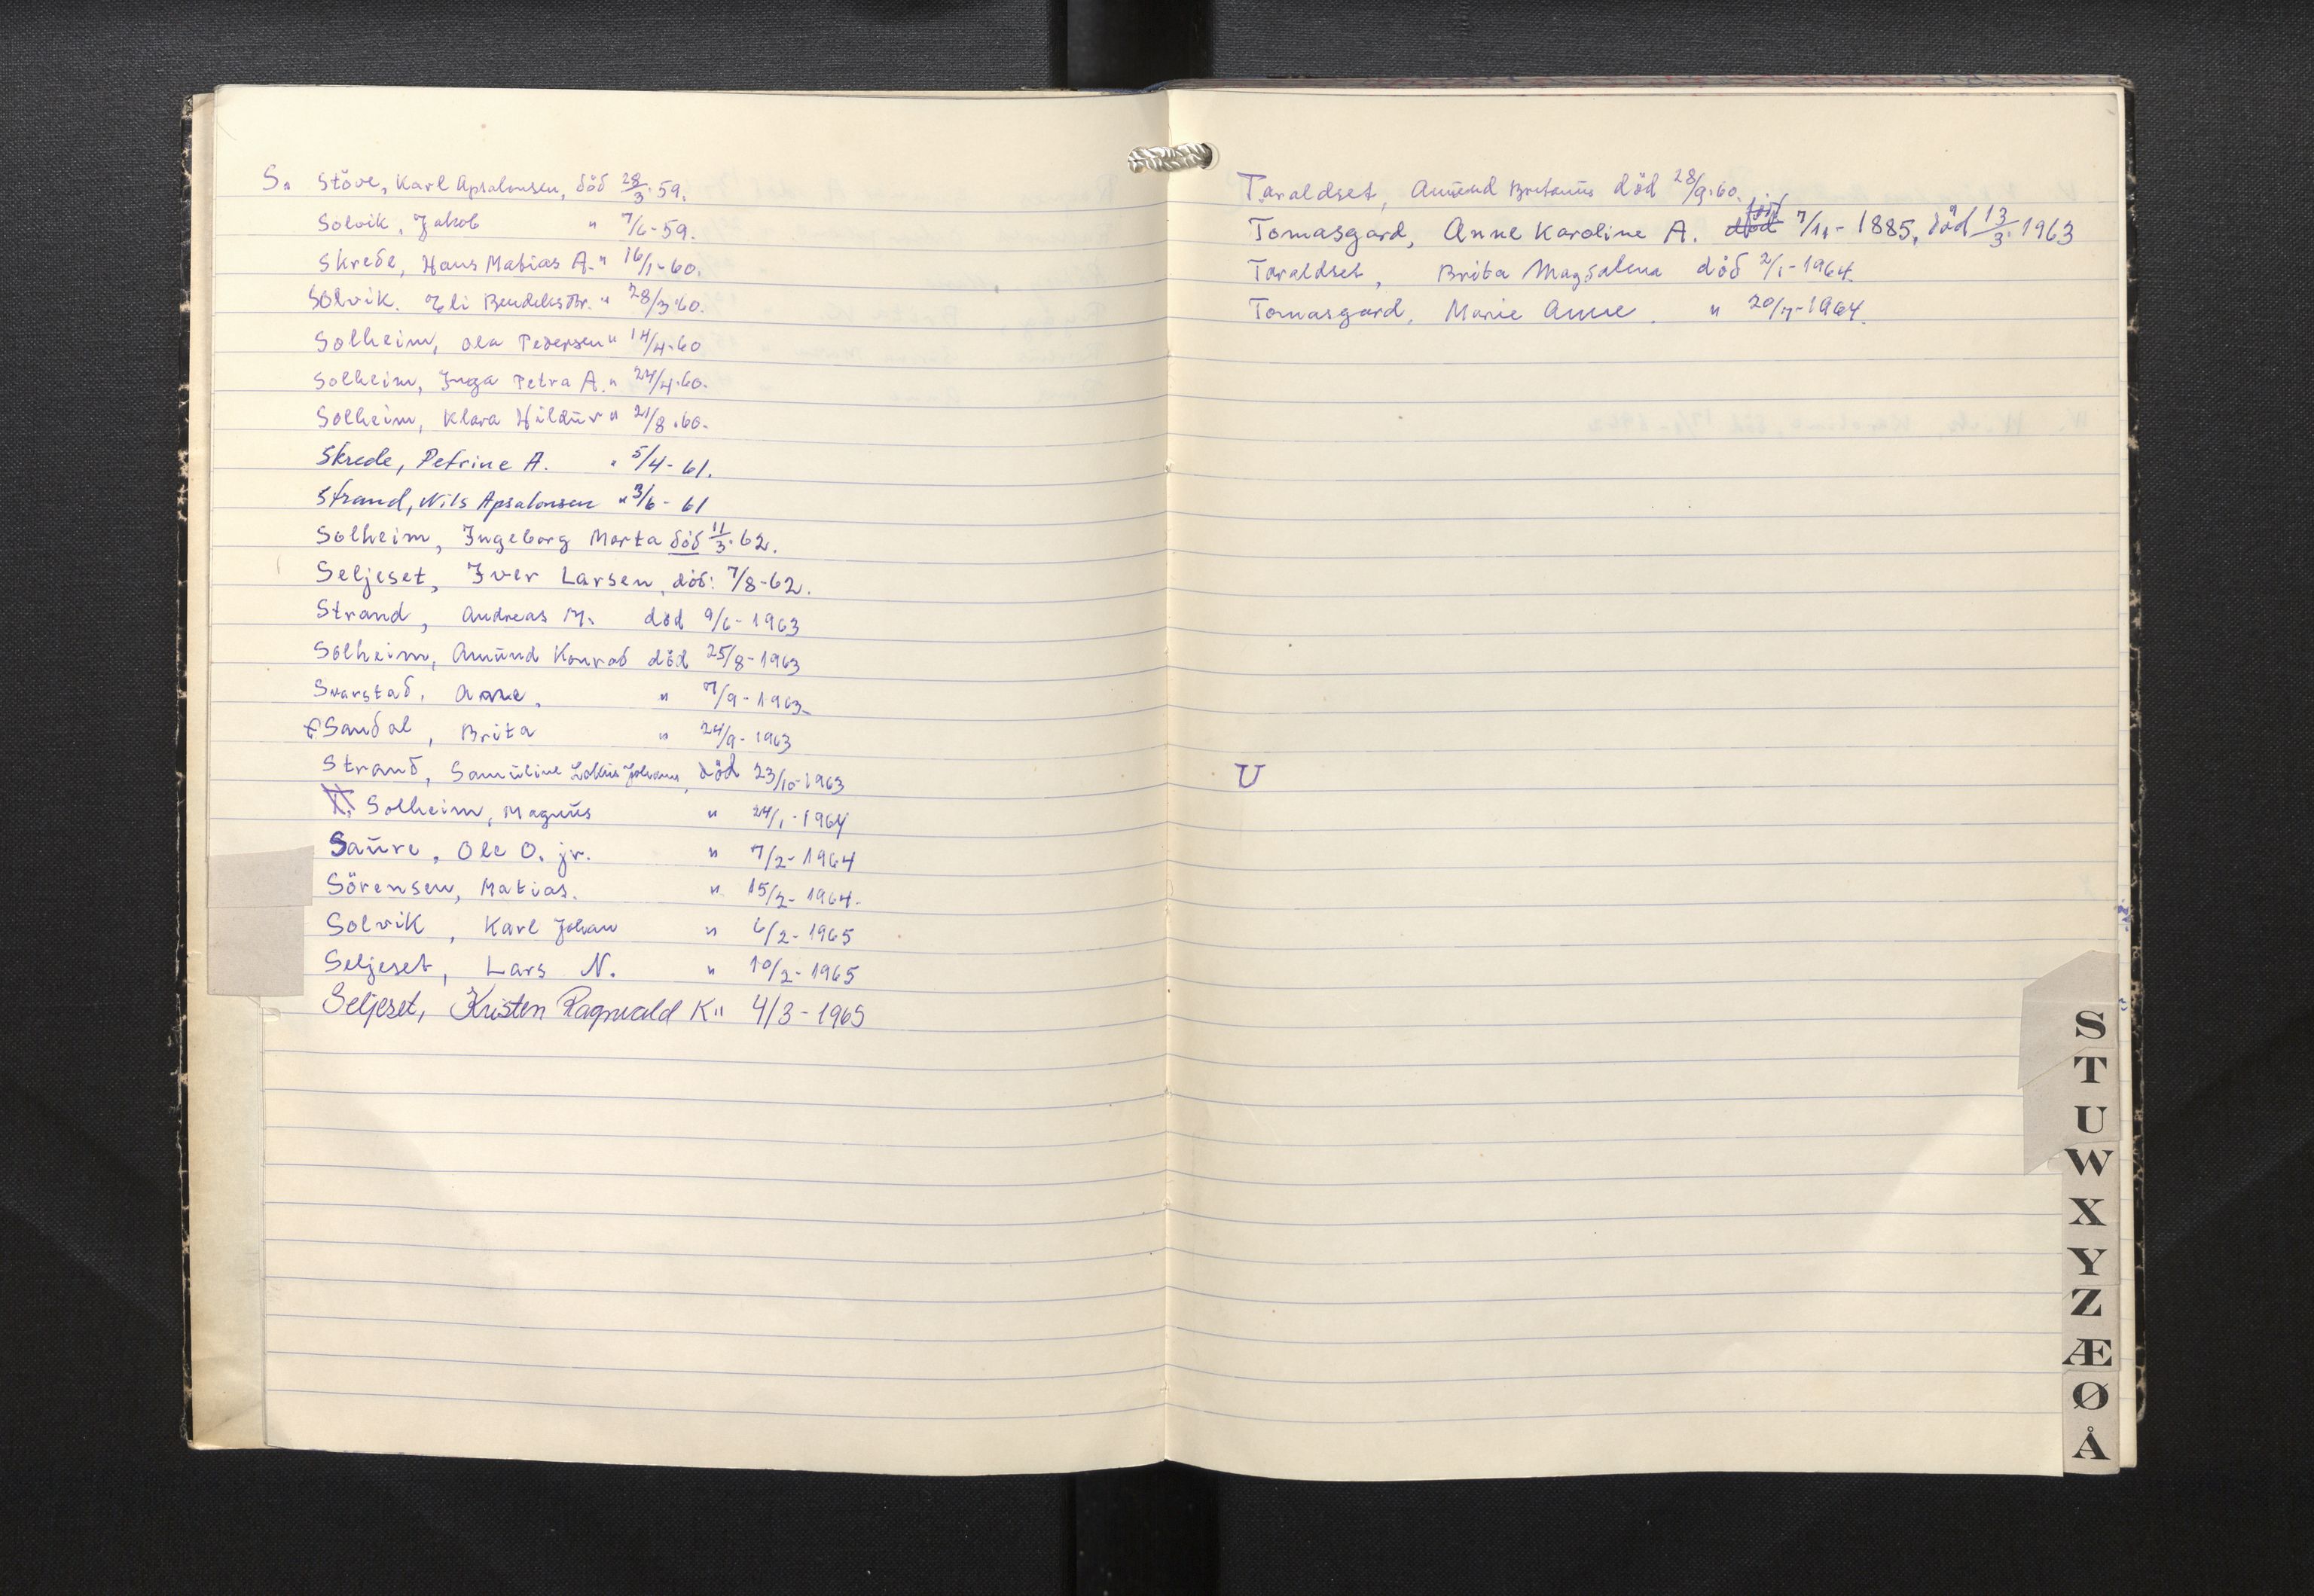 S. Støve, Karl Apsalonsen, død 28/3.59.
Solvik, Jakob " 7/6-59.
Skrede, Hans Matias A. " 16/1-60.
Solvik. Eli Bendeksdtr. " 28/3.60.
Solheim, Ola Pedersen " 14/4-60
Solheim, Inga Petra A. " 24/4.60.
Solheim, Klara Hildur " 21/8.60.
Skrede, Petrine A. " 5/4-61.
Strand, Nils Apsalonsen " 3/6-61
Solheim, Ingeborg Marta død 11/3.62.
Seljeset, Iver Larsen, død: 7/8-62.
Strand, Andreas M. död 9/6-1963
Solheim, Amund Konrad död 25/8-1963
Svarstad, Anne, " 7/9-1963-
Sandal, Brita " 24/9-1963
Strand, Samuline Johanna, död 23/10-1963
Solheim, Magnus " 24/1-1964
Saure, Ole O. jr. " 7/2-1964
Sörensen, Matias. " 15/2-1964.
Solvik, Karl Johan " 6/2-1965
Seljeset, Lars N. " 10/2-1965
Seljeset, Kristen Ragnvald K " 4/3-1965
Taraldset, Amund Bertinus död 28/9.60.
född
Tomasgard, Anne Karoline A. död 7/11-1885, död 13/3.1963
Taraldset, Brita Magdalena död 2/1-1964.
Tomasgard, Marie Anne. " 20/7-1964.
U
S
T
U
W
X
Y
Z
Æ
Ø
Å